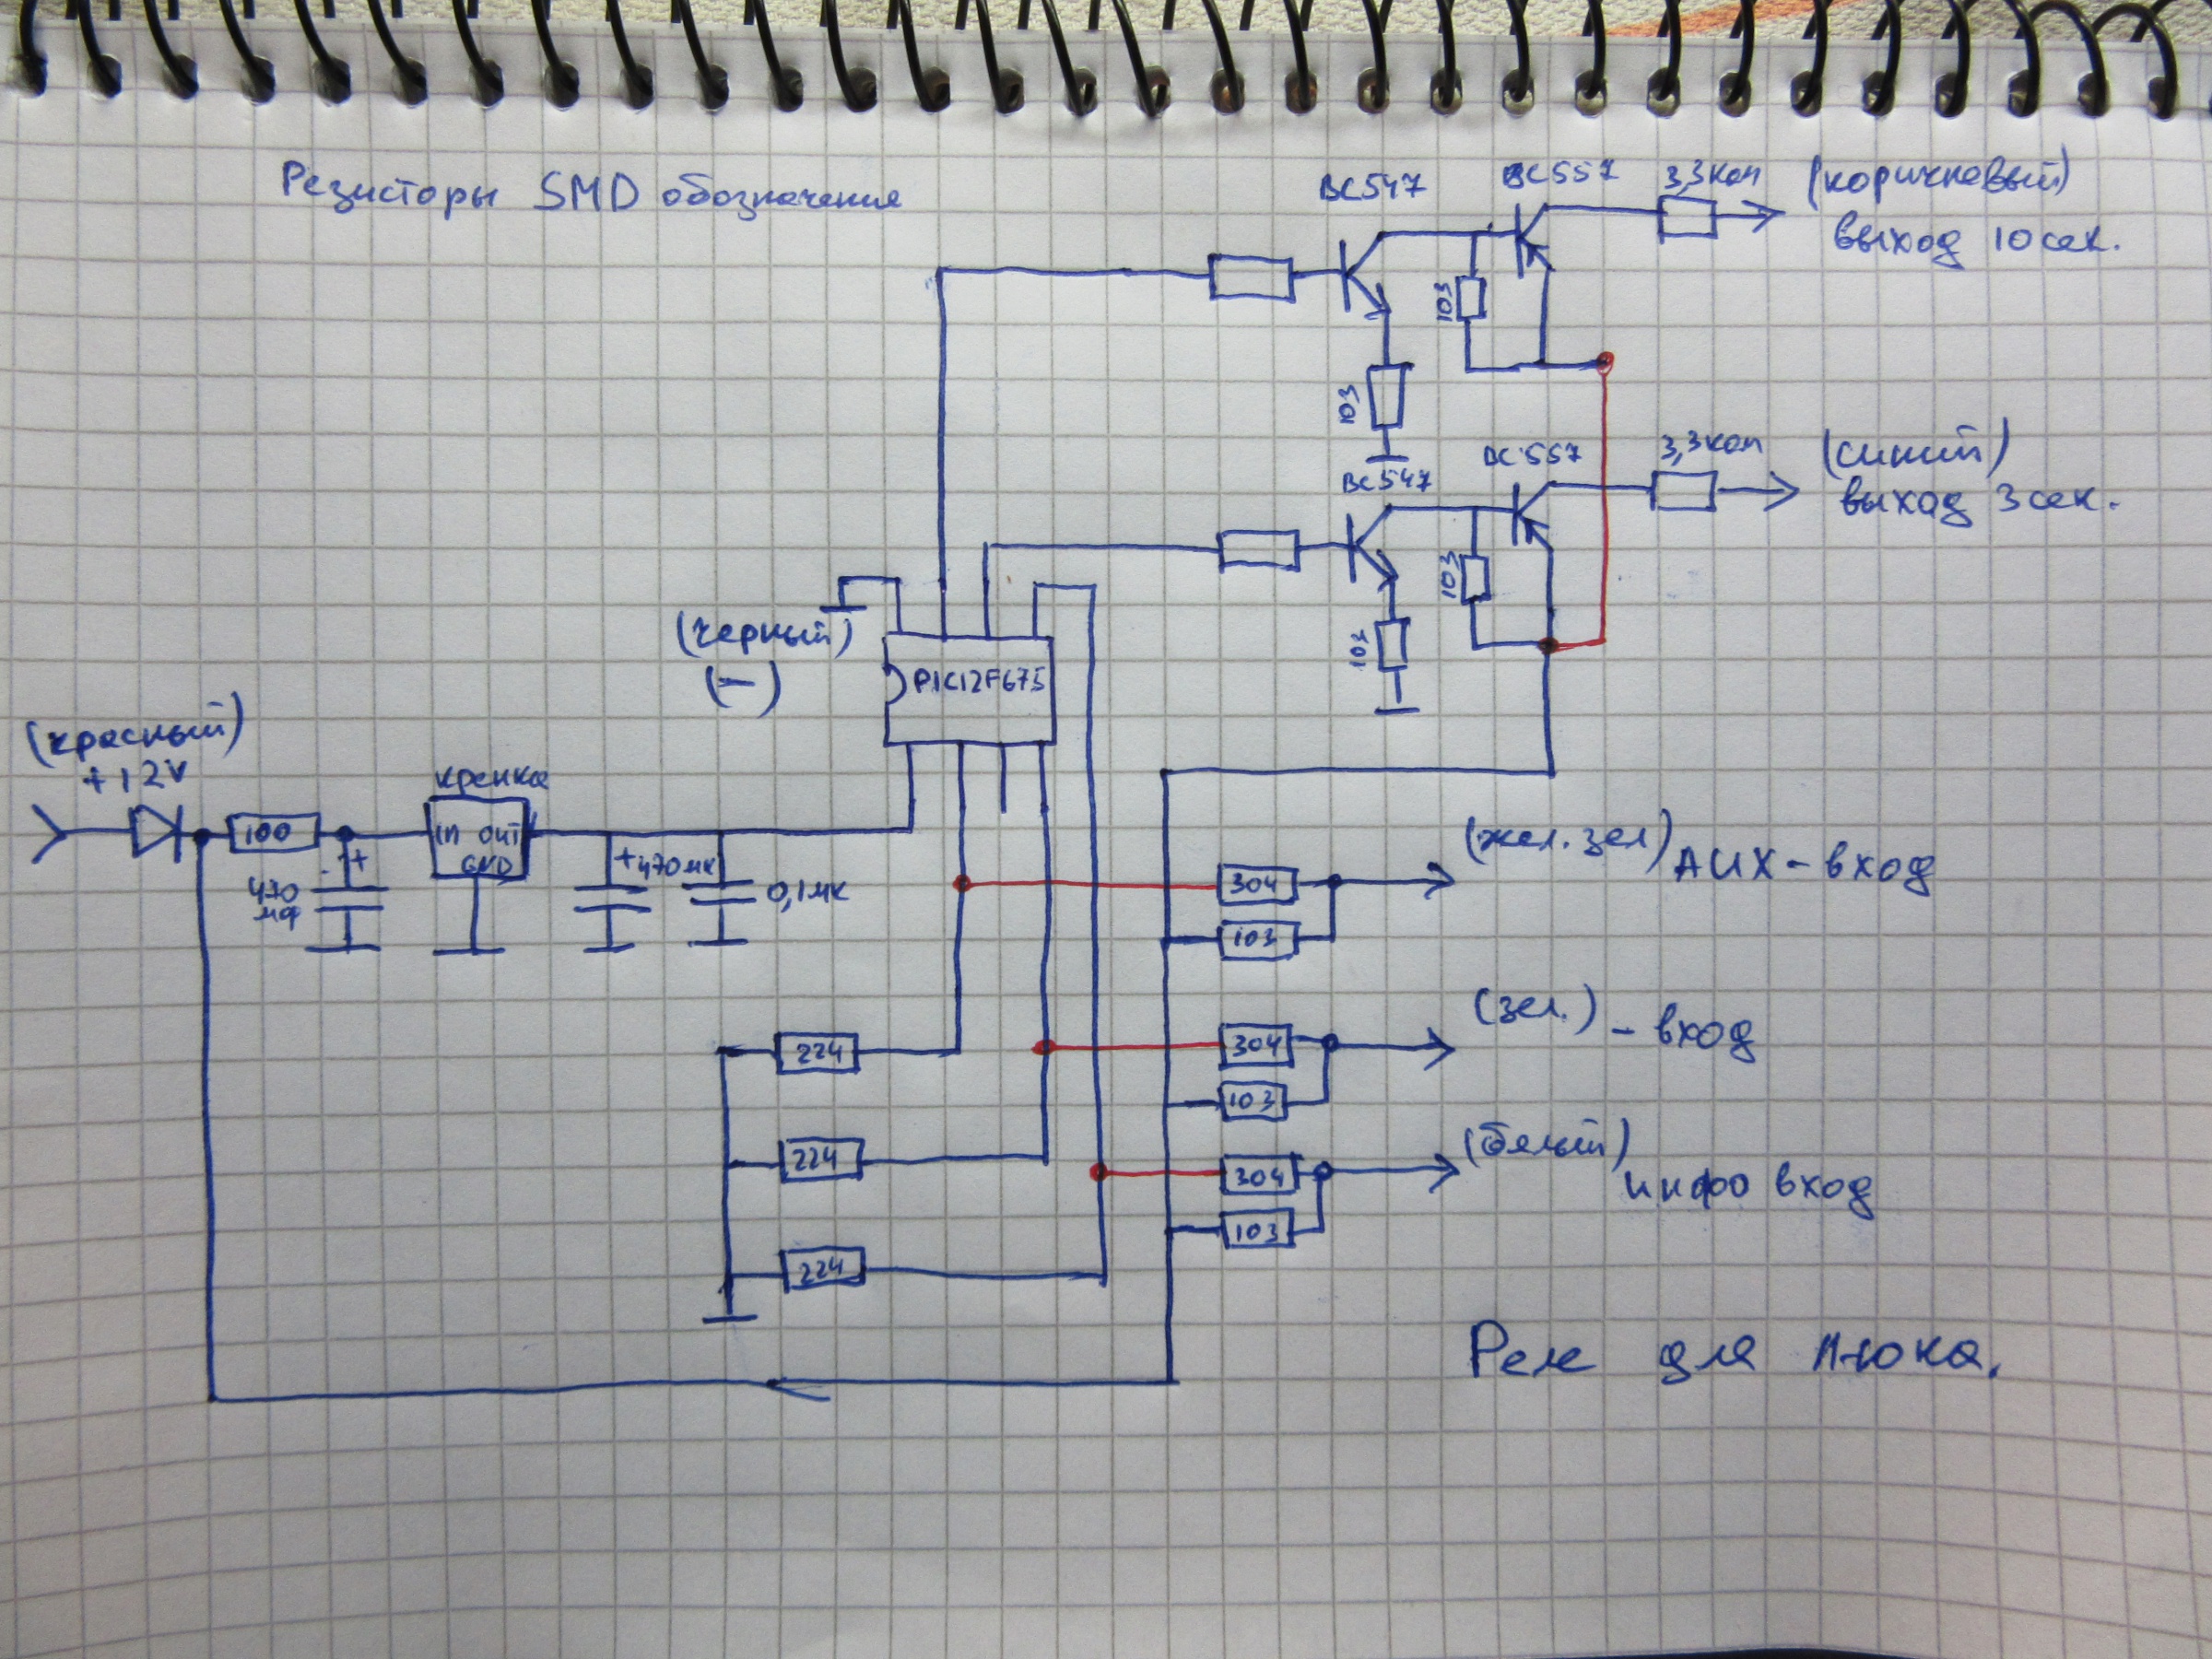 Резисторы SMD обозначение
BC547
BC557
3,3 ком
(коричневый)
выход 10 сек.
103
103
BC547
BC557
3,3 ком
(синий)
выход 3 сек.
103
103
(черный)
(-)
PIC12F675
(красный)
+12V
100
470
мф
+
кренка
In out
GND
+470мк
0,1мк
304
103
(жел. зел)
AUX-вход
304
103
(зел.)
- вход
304
103
(белый)
инфо вход
224
224
224
Реле для люка.